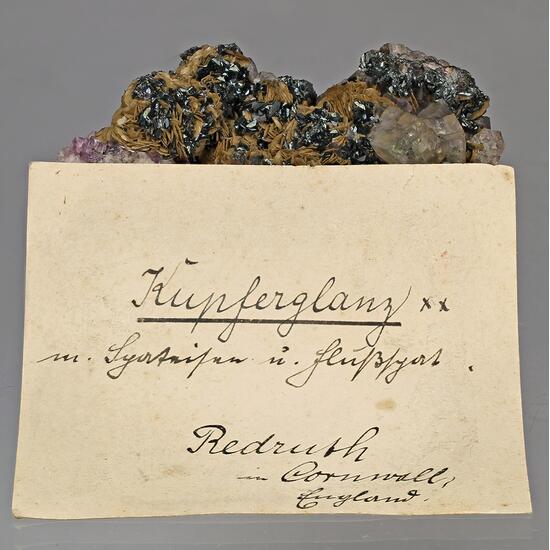 Kupferglanz xx
m. Spateisen u. Flußspat.
Redruth
in Cornwall,
England.